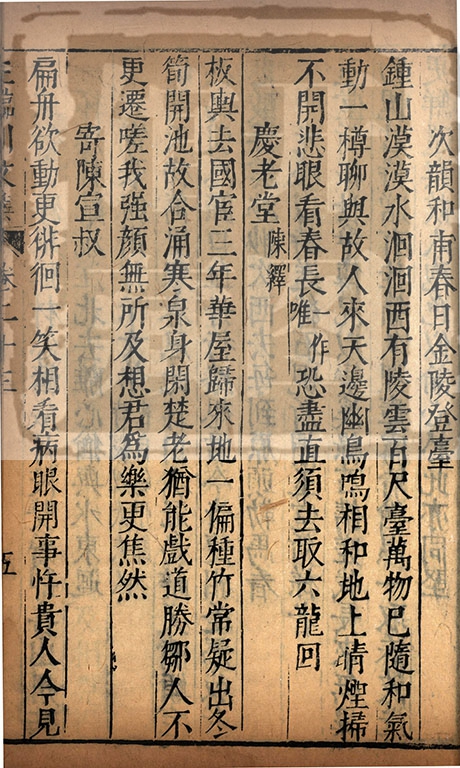 次韻和甫春日金陵登臺
鍾山漠漠水洄洄西有陵雲百尺臺萬物已隨和氣
動一樽聊與故人來天邊幽鳥鳴相和地上晴煙掃
不開悲眼看春長一作唯恐盡直須去取六龍回
慶老堂陳繹
板輿去國宦三年華屋歸來地一偏種竹常疑出冬
筍開池故合涌寒泉身閑楚老猶能戲道勝鄒人不
更遷嗟我强顏無所及想君為樂更焦然
寄陳宣叔
扁舟欲動更徘徊一笑相看病眼開事忤貴人今見
卷二十三
五